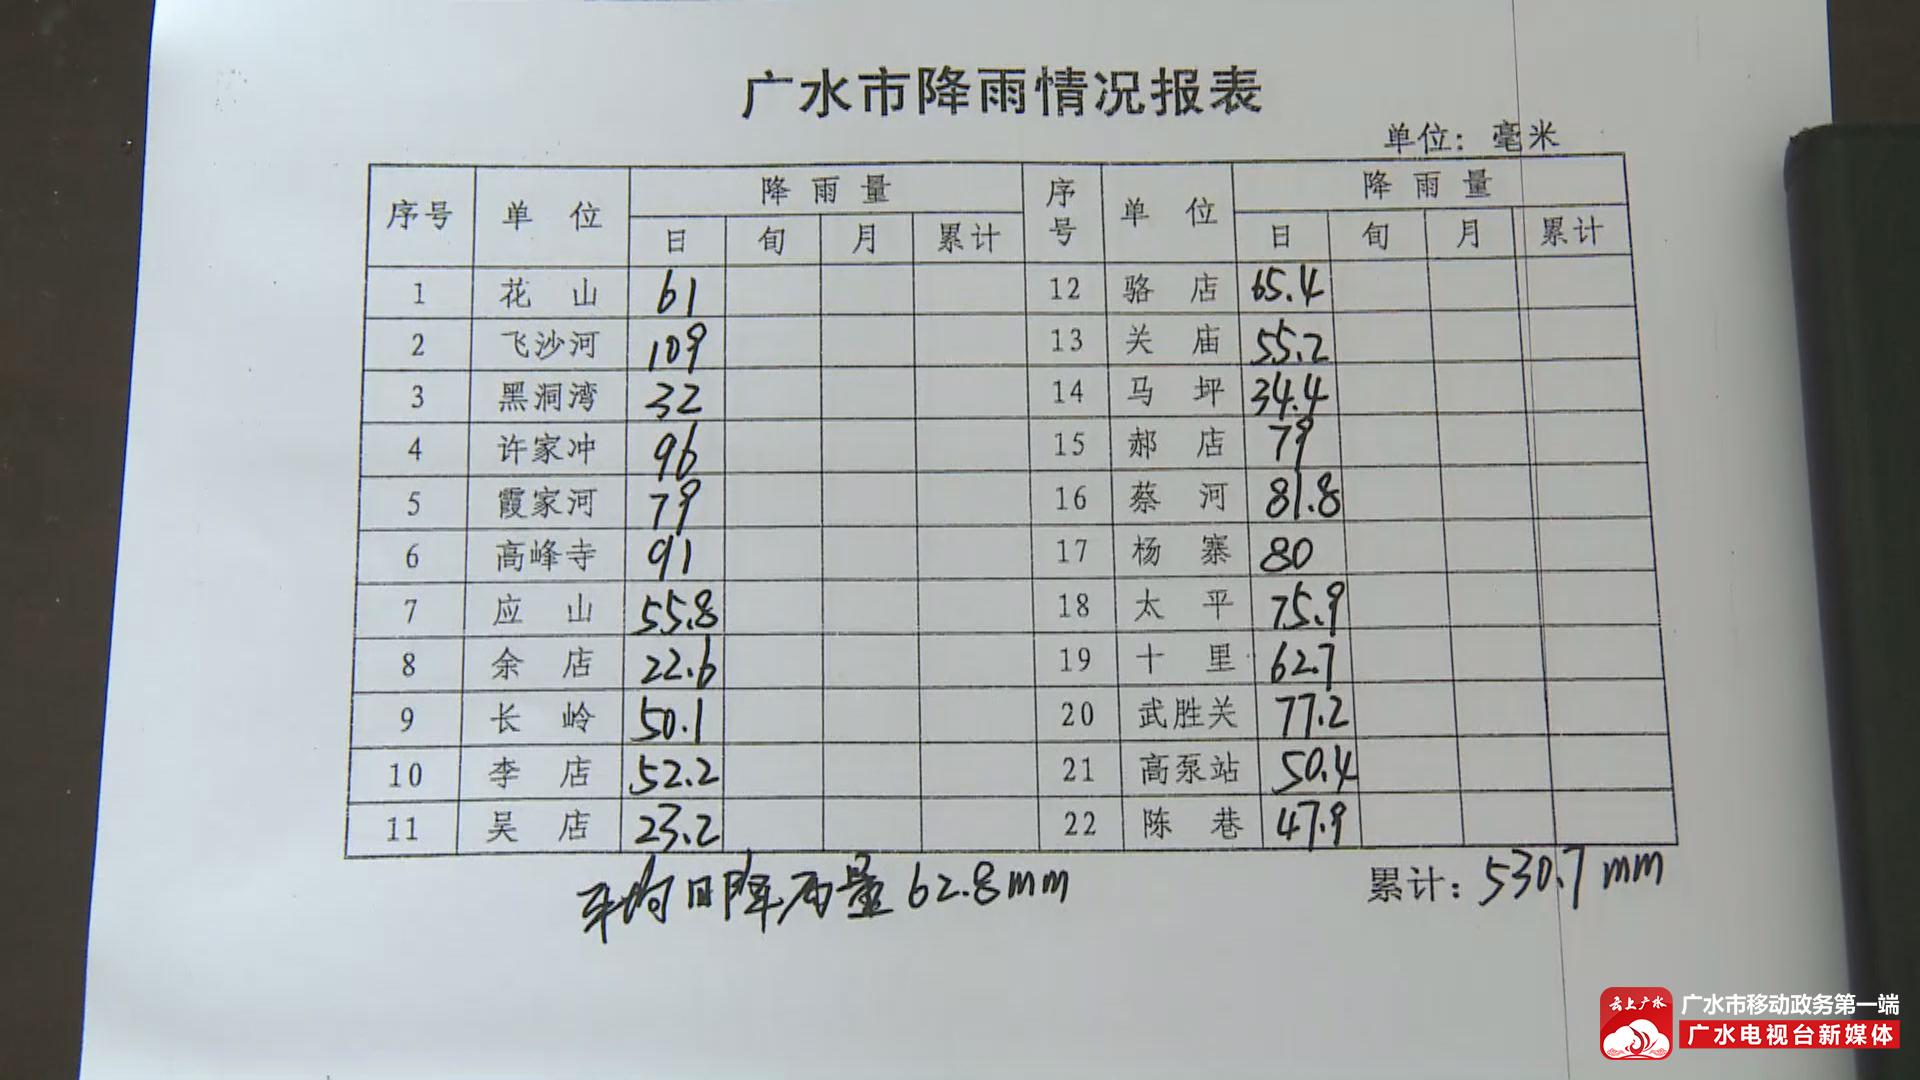 广水市降雨情况报表
单位：毫米
序号 单位 降雨量 序号 单位 降雨量
日 旬 月 累计 日 旬 月 累计
1 花山 61 12 骆店 65.4
2 飞沙河 109 13 关庙 55.2
3 黑洞湾 32 14 马坪 34.4
4 许家冲 96 15 郝店 79
5 霞家河 79 16 蔡河 81.8
6 高峰寺 91 17 杨寨 80
7 应山 55.8 18 太平 75.9
8 余店 22.6 19 十里 62.7
9 长岭 50.1 20 武胜关 77.2
10 李店 52.2 21 高泵站 50.4
11 吴店 23.2 22 陈巷 47.9
平均日降雨量 62.8mm 累计：530.7mm
云上广水
广水市移动政务第一端
广水电视台新媒体